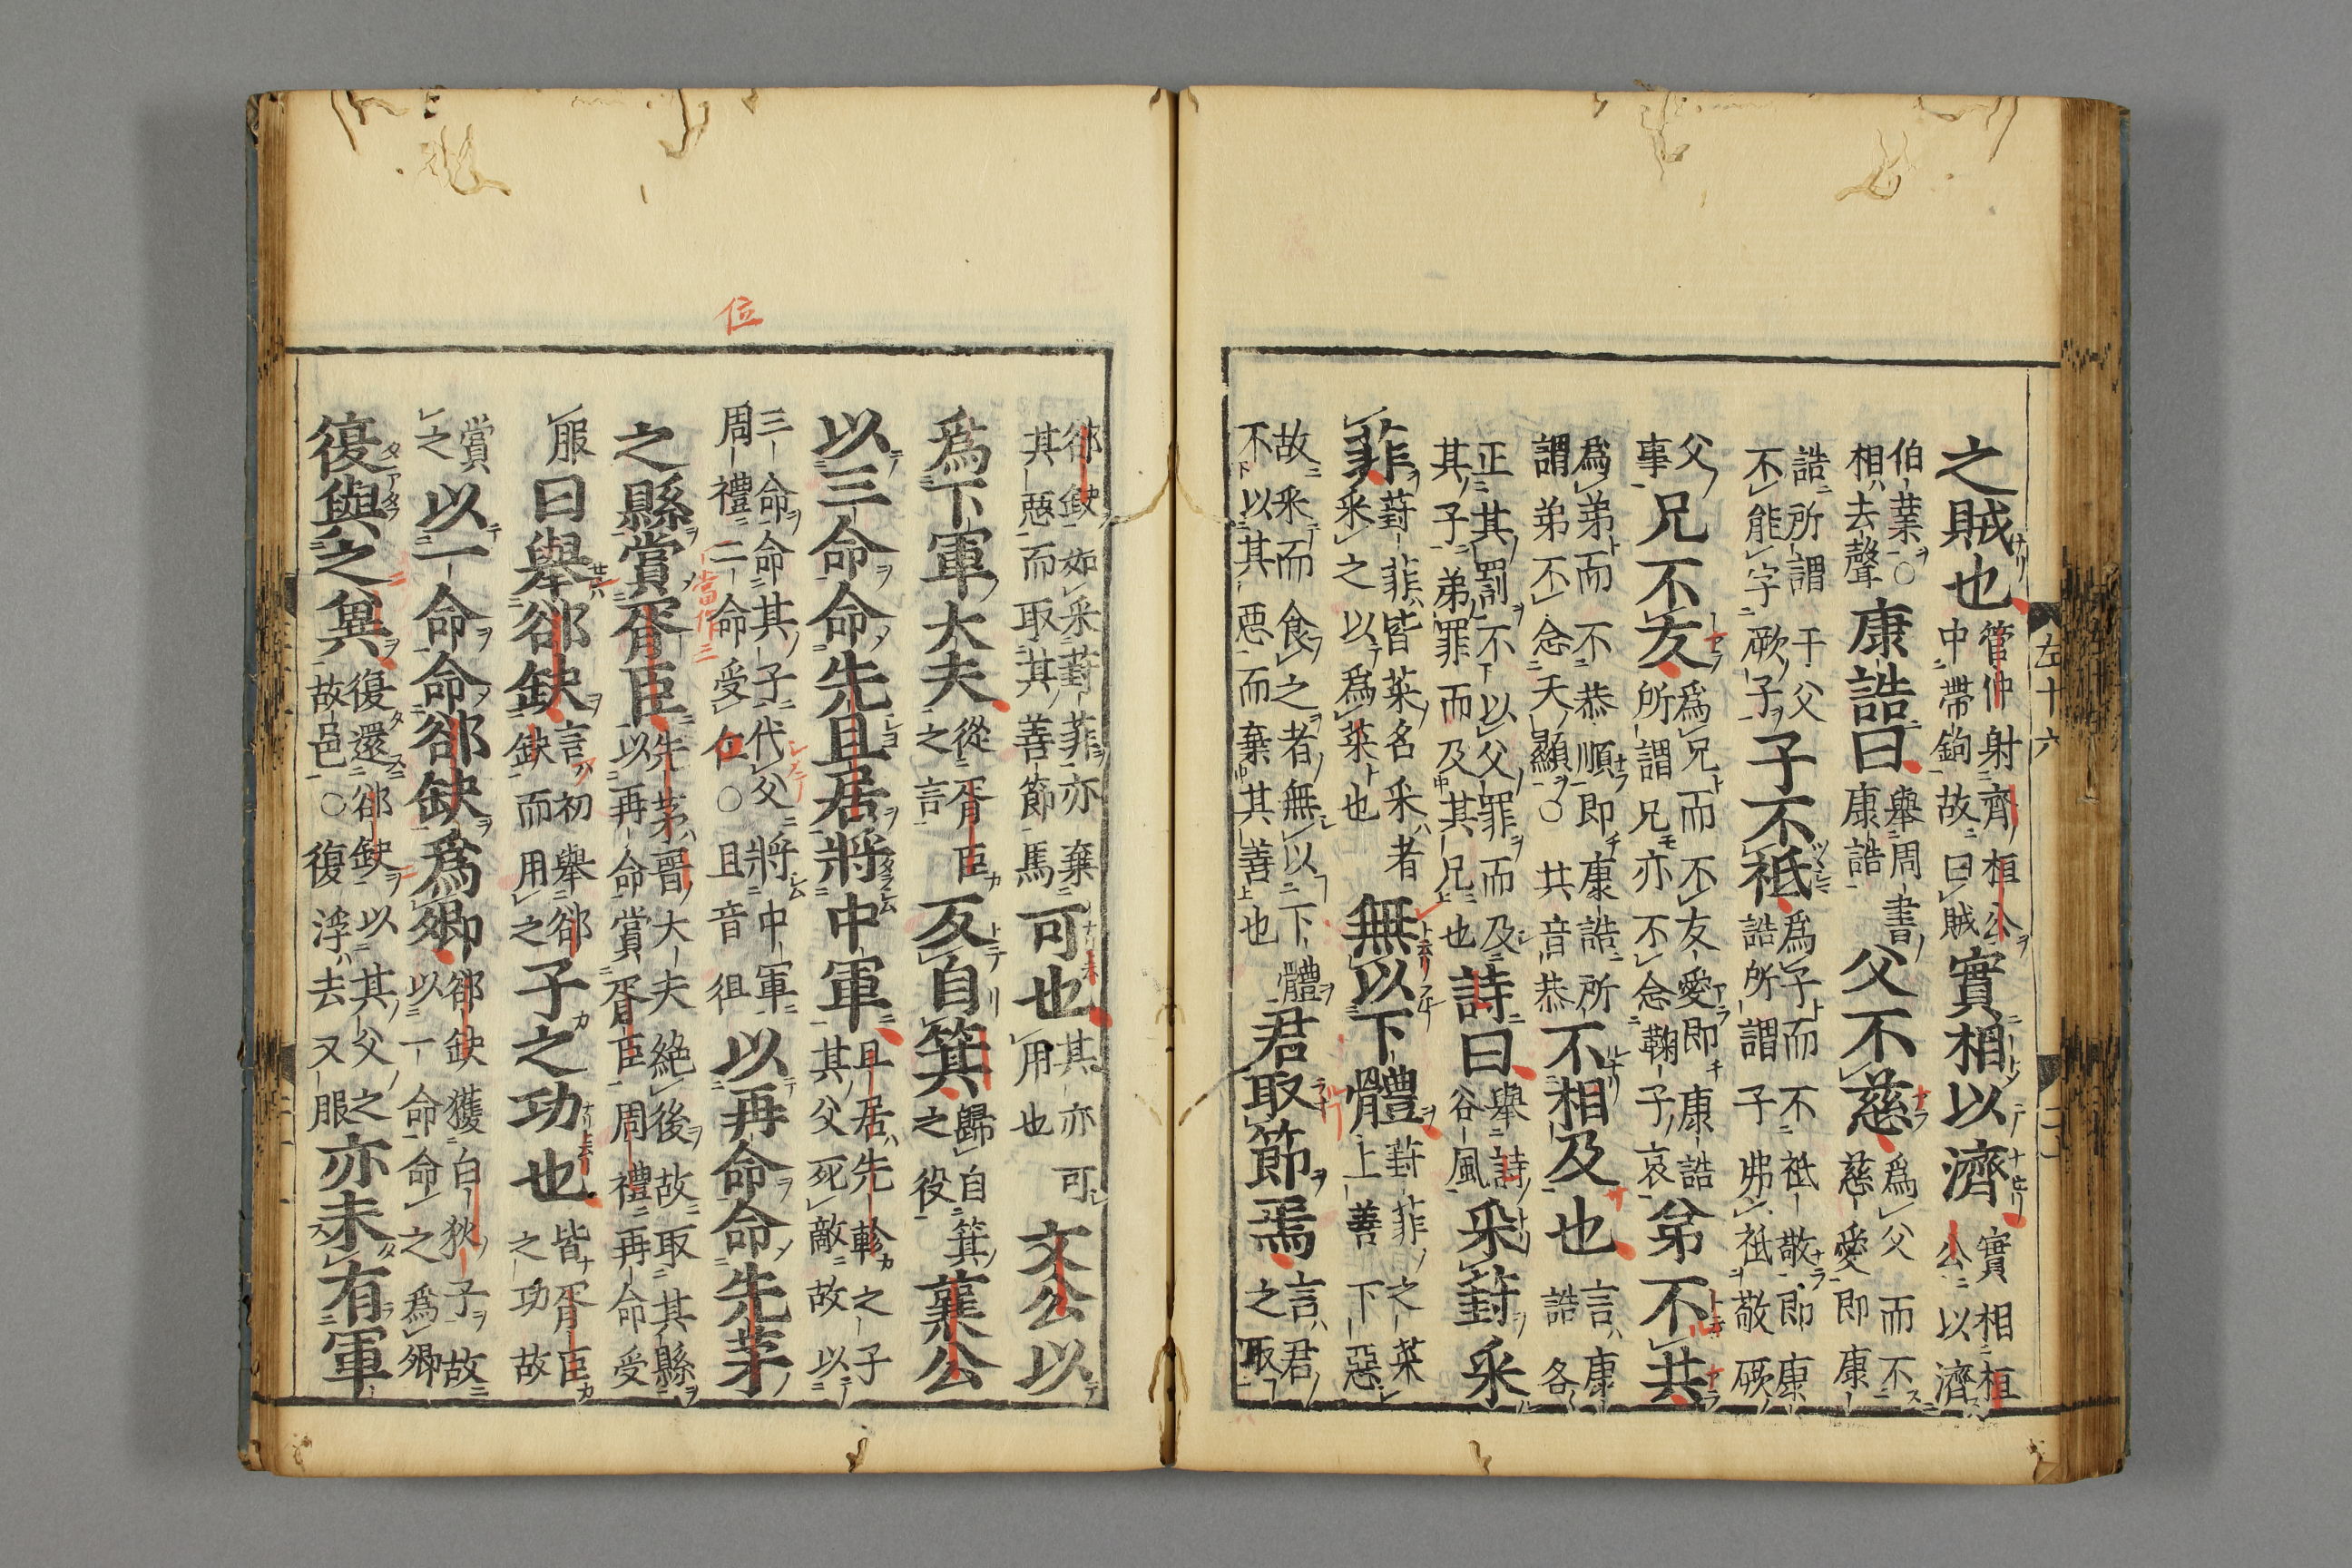 左十六
之賊也管仲射齊桓公中帶鉤故曰賊實相以濟實相桓公以濟
伯業○相去聲康誥曰舉周書康誥父不慈爲父而不慈愛即康
誥所謂于父不能字厥子子不祗爲子而不祗敬即康誥所謂子弗祗敬厥
父事兄不友爲兄而不友愛即康誥所謂兄亦不念鞠子哀弟不共
爲弟而不恭順即康誥所謂弟不念天顯○共音恭不相及也言康誥各
正其罰不以父罪而及其子弟罪而及其兄也詩曰舉詩谷風采葑采
菲葑菲皆菜名采者采之以爲菜也無以下體葑菲之菜上善下惡
故采而食之者無以下體不以其惡而棄其善也君取節焉言君之取
郤缺如采葑菲亦棄其惡而取其善節焉可也其亦可用也文公以
爲下軍大夫從胥臣之言反自箕歸自箕之役襄公
以三命命先且居將中軍且居先軫之子其父死敵故以
三命命其子代父將中軍周禮二命受仕○且音徂以再命命先茅
位
當作三
之縣賞胥臣先茅晉大夫絕後故取其縣以再命賞胥臣周禮再命受
服曰舉郤缺言初舉郤缺而用之子之功也皆胥臣之功故
賞之以一命命郤缺爲卿郤缺獲白狄子故以一命命之爲卿
復與之冀復還郤缺以其父故邑○復浮去又服亦未有軍